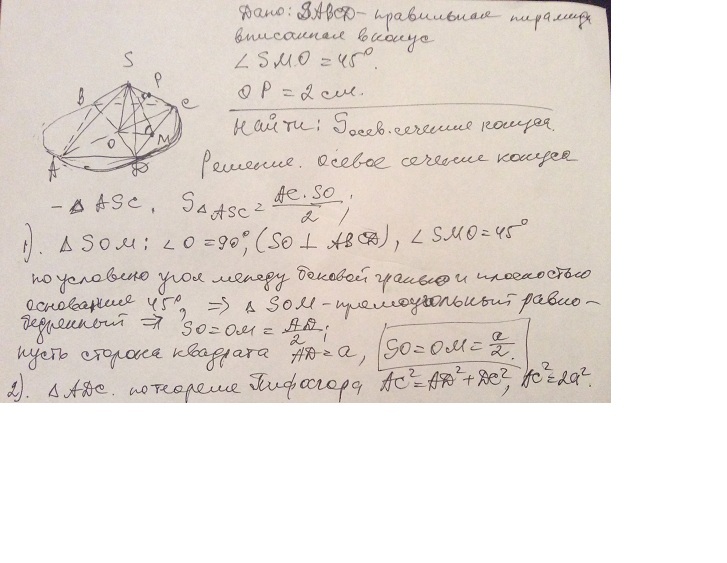 Дано: SABCD - правильная пирамида
вписанная в конус
∠SMO = 45°.
OP = 2 см.
Найти: S осев. сечение конуса.
S
P
B
C
O
M
A
D
Решение. Осевое сечение конуса
- △ ASC, S△ASC = AC·SO/2;
1). △ SOM: ∠O = 90°, (SO ⊥ ABCD), ∠SMO = 45°
по условию угол между боковой гранью и плоскостью
основания 45°, ⇒ △ SOM - прямоугольный равно-
бедренный ⇒ SO = OM = AD/2;
пусть сторона квадрата AD = a, SO = OM = a/2.
2). △ ADC. по теореме Пифагора AC² = AD² + DC², AC² = 2a².